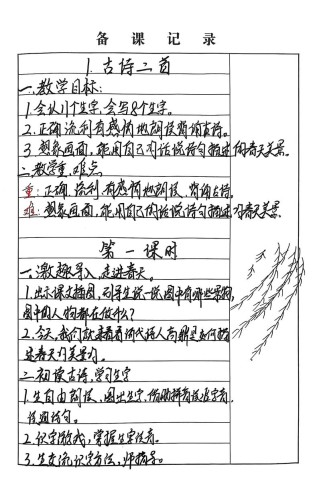 备课记录
1.古诗二首
一、教学目标:
1.会认11个生字,会写8个生字。
2.正确、流利、有感情地朗读、背诵古诗。
3.想象画面,能用自己的话说诗句描述的春天美景。
二、教学重、难点
重:正确、流利、有感情地朗读、背诵古诗。
难:想象画面,能用自己的话说诗句描述的春天美景。
第一课时
一、激趣导入,走进春天。
1.出示课文插图,引导生说一说图中有哪些景物,
图中的人物都在做什么?
2.今天,我们就来看看古代诗人高鼎是如何描
述春天的美景的。
二、初读古诗,学习生字
1.生自由朗读,圈出生字,借助拼音读准字音,
读通诗句。
2.识字游戏,掌握生字读音。
3.生交流识字方法,师指导。